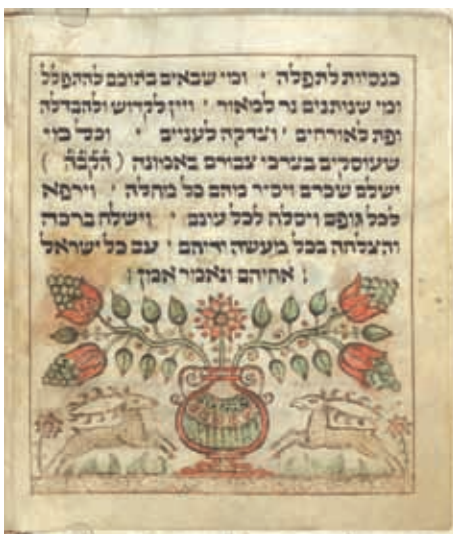 כנסיות לתפלה ׳ ומי שבאים בתוכם להתפלל
ומי שנותנים נר למאור ׳ ויין לקדוש ולהבדלה
ופת לאורחים ׳ וצדקה לעניים ׳ וכל מי
שעוסקים בצרכי צבורם באמונה ( הקבה )
ישלם שכרם ויסיר מהם כל מחלה ׳ וירפא
לכל גופם ויסלח לכל עונם ׳ וישלח ברכה
והצלחה בכל מעשה ידיהם ׳ עם כל ישראל
אחיהם ונאמר אמן